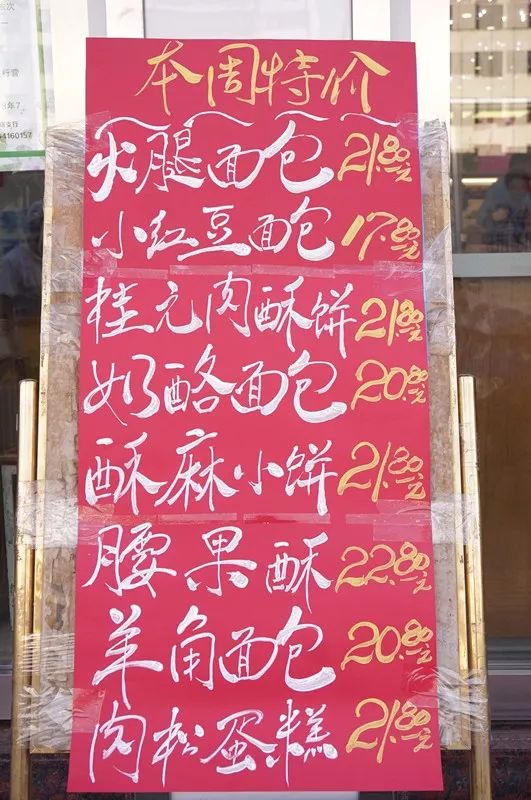 本周特价
火腿面包 21.80元
小红豆面包 17.80元
桂元肉酥饼 21.80元
奶酪面包 20.80元
酥麻小饼 21.80元
腰果酥 22.80元
羊角面包 20.80元
肉松蛋糕 21.80元
4160157